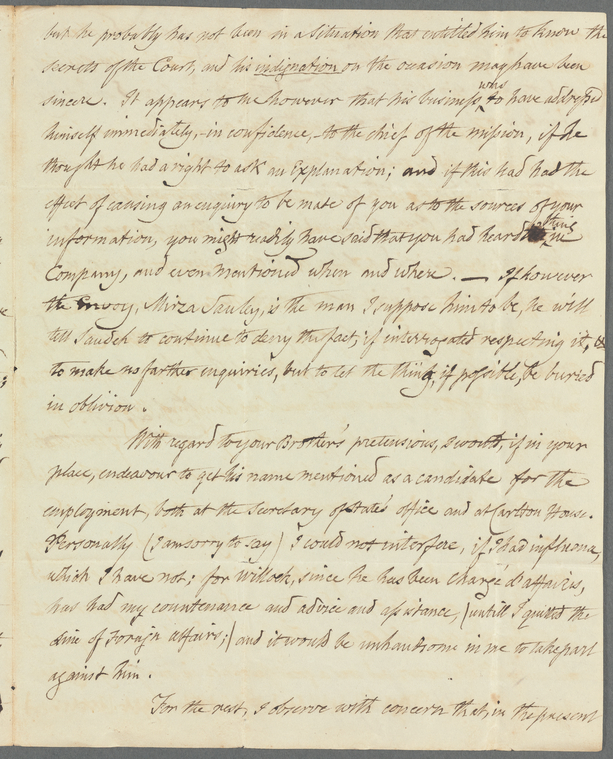 but he probably has not been in a situation that entitled him to know the
secrets of the Court, and his indignation on the occasion may have been
sincere. It appears to me however that his business was to have addressed
himself immediately, - in confidence, - to the chief of the mission, if he
thought he had a right to ask an Explanation; and if this had had the
effect of causing an enquiry to be made of you as to the sources of your
information, you might readily have said that you had heard the thing in
Company, and even mentioned when and where. — If however
the Envoy, Mirza Sauley, is the man I suppose him to be, he will
tell Saudek to continue to deny the fact, if interrogated respecting it, &
to make no farther enquiries, but to let the thing, if possible, be buried
in oblivion.
With regard to your Brother's pretensions, I would, if in your
place, endeavour to get his name mentioned as a candidate for the
employment, both at the Secretary of State's office and at Carlton House.
Personally (I am sorry to say) I could not interfere, if I had influence,
which I have not; for Willock, since he has been Chargé d'affaires,
has had my countenance and advice and assistance, (untill I quitted the
line of Foreign affairs;) and it would be unhandsome in me to take part
against him.
For the rest, I observe with concern that, in the present